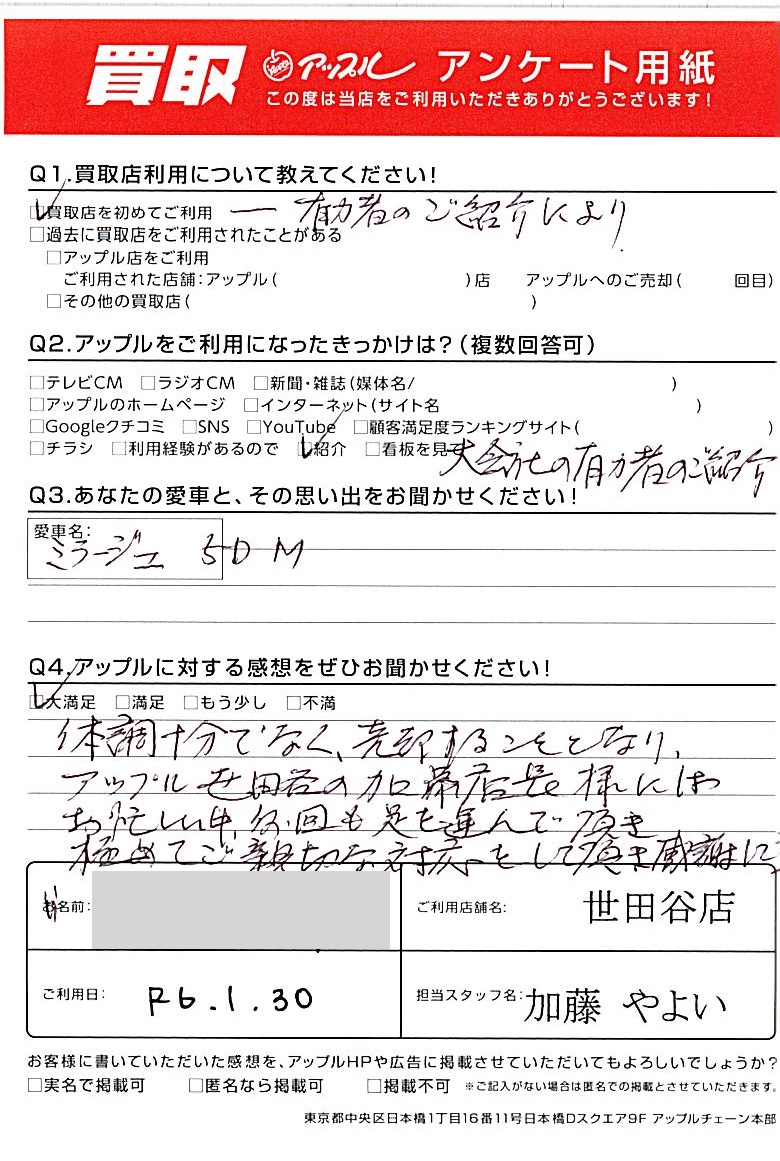 買取 アップル アンケート用紙
この度は当店をご利用いただきありがとうございます！
Q1.買取店利用について教えてください！
□買取店を初めてご利用 ― 有力者のご紹介により
□過去に買取店をご利用されたことがある
□アップル店をご利用
ご利用された店舗：アップル（ ）店 アップルへのご売却（ 回目）
□その他の買取店（ ）
Q2.アップルをご利用になったきっかけは？（複数回答可）
□テレビCM □ラジオCM □新聞・雑誌（媒体名/ ）
□アップルのホームページ □インターネット（サイト名 ）
□Googleクチコミ □SNS □YouTube □顧客満足度ランキングサイト（ ）
□チラシ □利用経験があるので □紹介 □看板を見て
大会社の有力者のご紹介
Q3.あなたの愛車と、その思い出をお聞かせください！
愛車名：
ミラージュ 5DM
Q4.アップルに対する感想をぜひお聞かせください！
□大満足 □満足 □もう少し □不満
体調十分でなく、売却することとなり、
アップル世田谷の加藤店長様には
お忙しい中、 回も足を運んで頂き
極めてご親切な対応をして頂き感謝に
お名前：
ご利用店舗名： 世田谷店
ご利用日： R6.1.30
担当スタッフ名： 加藤 やよい
お客様に書いていただいた感想を、アップルHPや広告に掲載させていただいてもよろしいでしょうか？
□実名で掲載可 □匿名なら掲載可 □掲載不可 ※ご記入がない場合は匿名での掲載とさせていただきます。
東京都中央区日本橋1丁目16番11号日本橋Dスクエア9F アップルチェーン本部